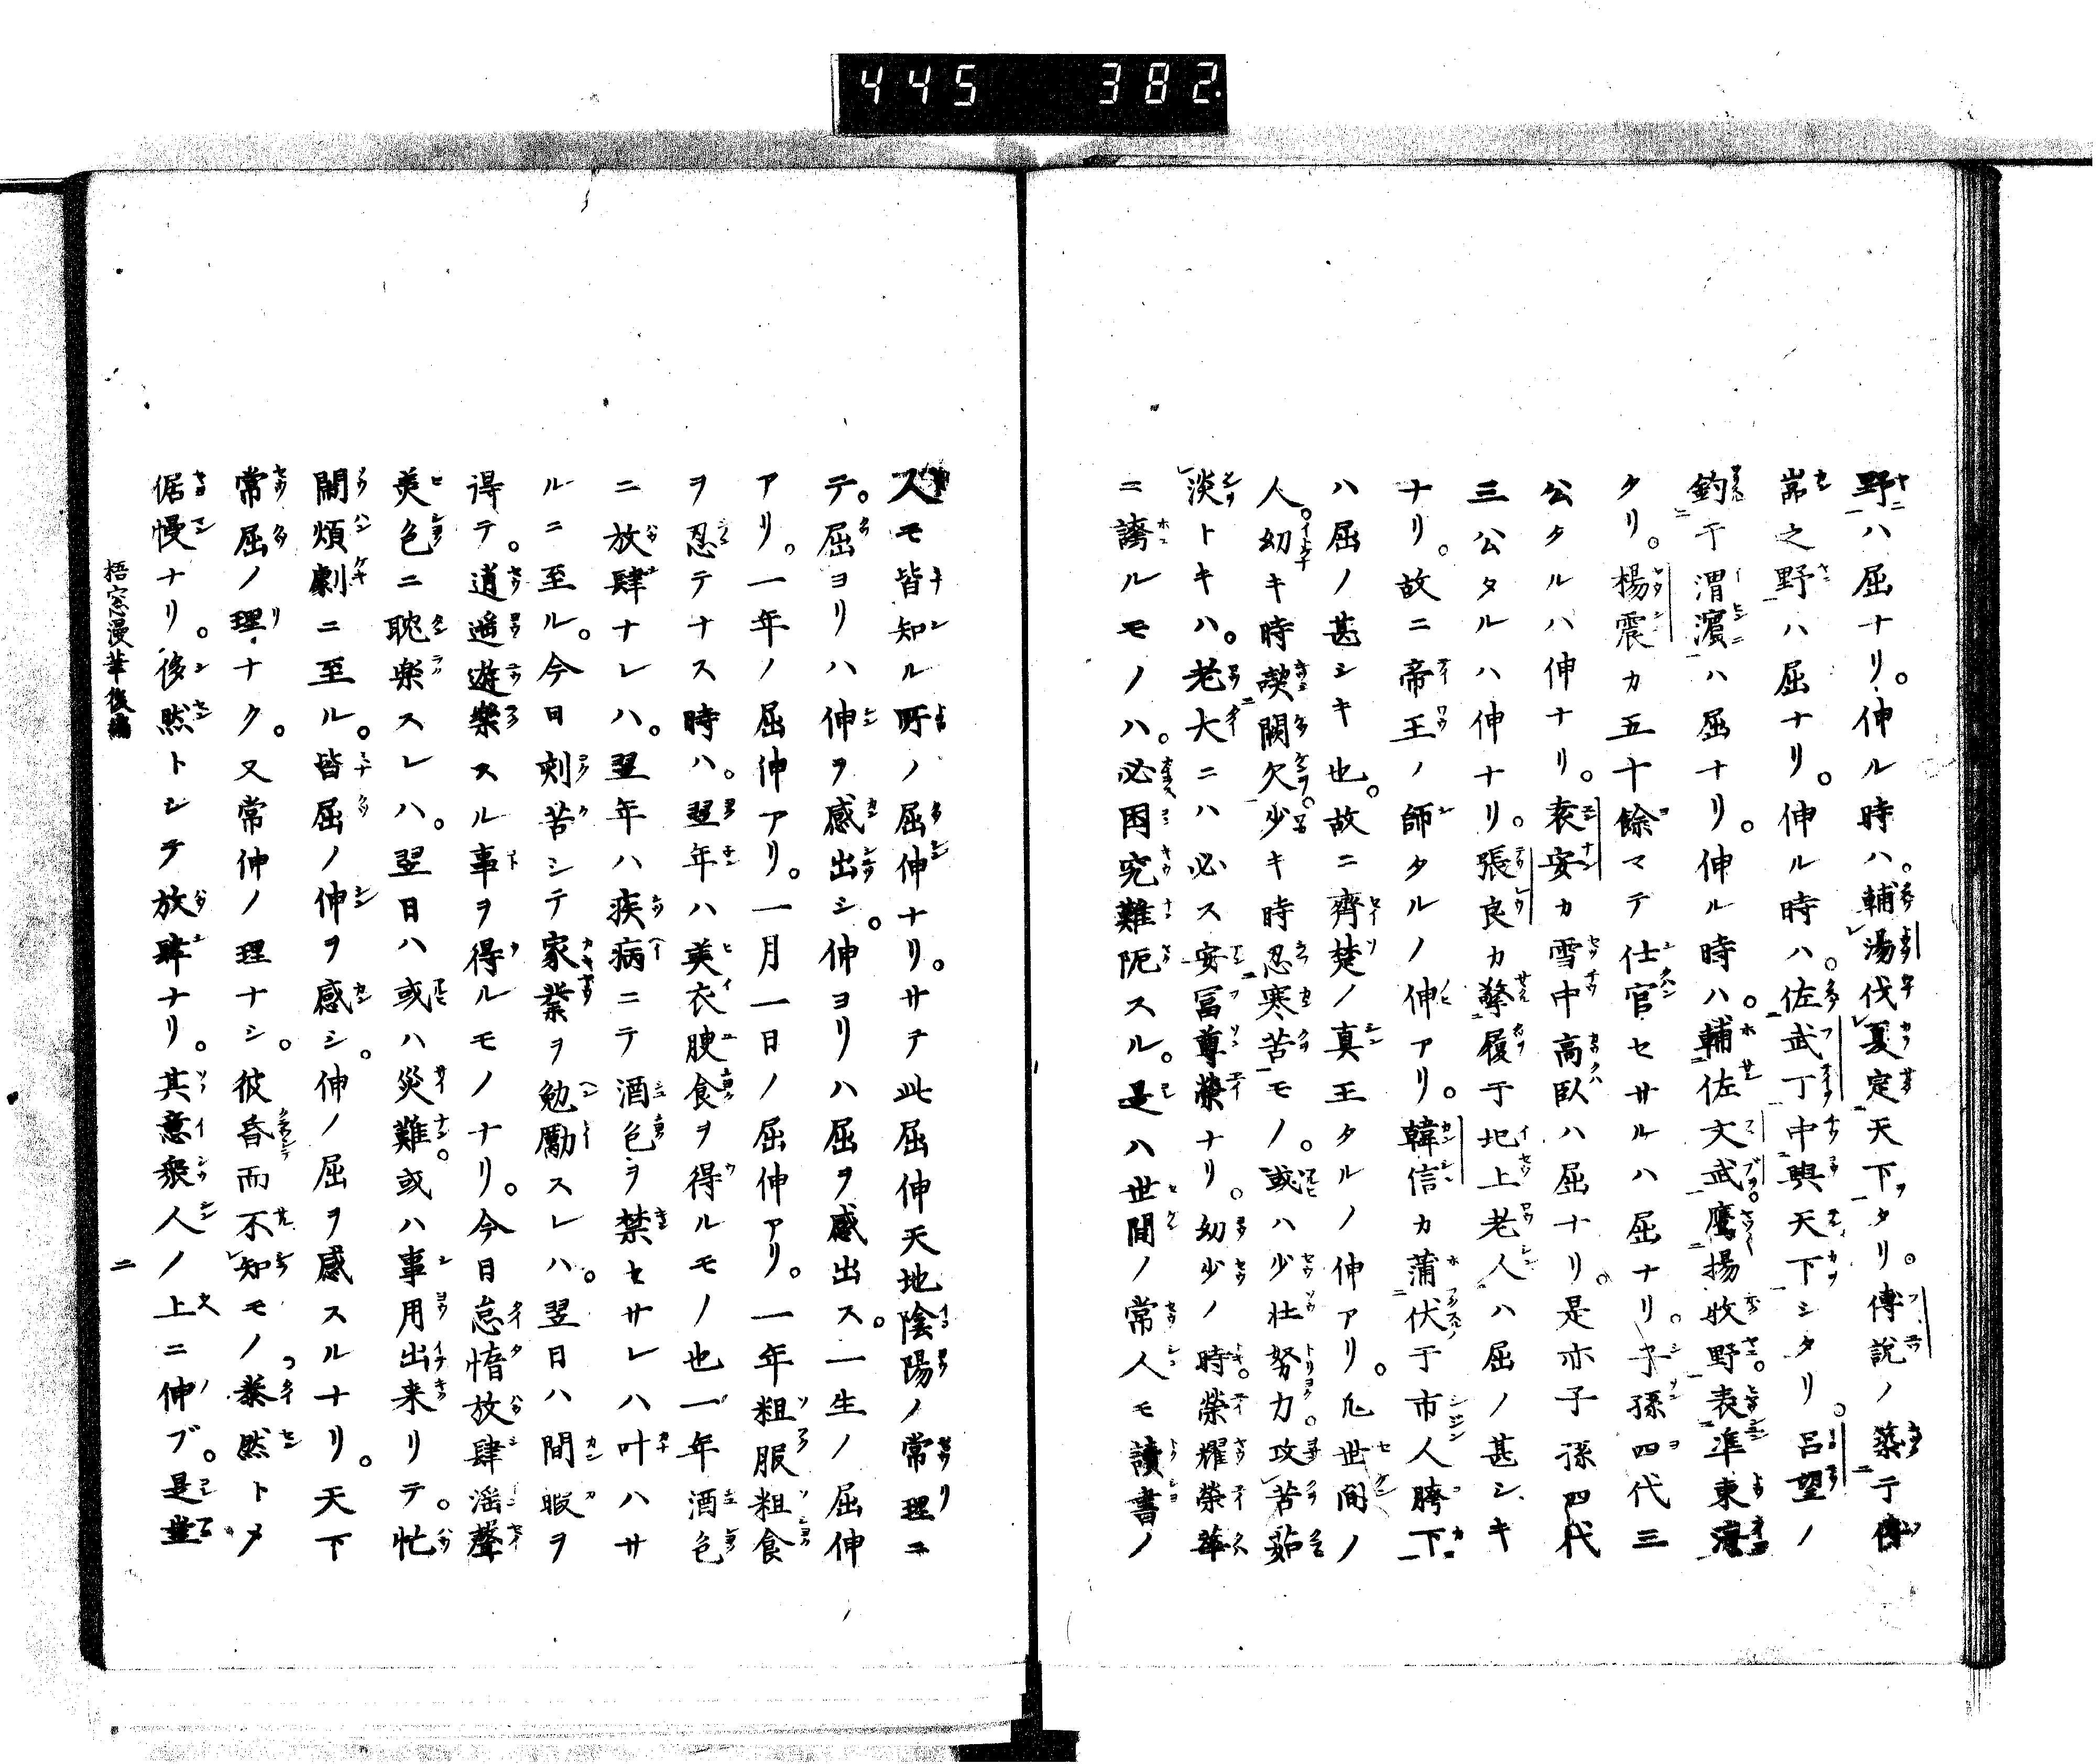 445 382.
野ハ屈ナリ。伸ル時ハ。輔湯伐夏定天下タリ。傅説ノ築于傅
岩之野ハ屈ナリ。伸ル時ハ。佐武丁中興天下シタリ。呂望ノ
釣于渭濱ハ屈ナリ。伸ル時ハ。輔佐文武鷹揚牧野。表準東海
タリ。楊震カ五十餘マテ仕官セサルハ屈ナリ。子孫四代三
公タルハ伸ナリ。袁安カ雪中高臥ハ屈ナリ。是亦子孫四代
三公タルハ伸ナリ。張良カ擎履于圯上老人ハ屈ノ甚シキ
ナリ。故ニ帝王ノ師タルノ伸アリ。韓信カ蒲伏于市人胯下
ハ屈ノ甚シキ也。故ニ齊楚ノ真王タルノ伸アリ。凡世間ノ
人。幼キ時喫闕欠少キ時忍寒苦モノ。或ハ少壮努力。攻苦茹
淡トキハ。老大ニハ必ス安冨尊榮ナリ。幼少ノ時。榮耀榮華
ニ誇ルモノハ。必困究難阨スル。是ハ世間ノ常人モ讀書ノ
人モ皆知ル所ノ屈伸ナリ。サテ此屈伸天地陰陽ノ常理ニ
テ。屈ヨリハ伸ヲ感出シ。伸ヨリハ屈ヲ感出ス。一生ノ屈伸
アリ。一年ノ屈伸アリ。一月一日ノ屈伸アリ。一年粗服粗食
ヲ忍テナス時ハ。翌年ハ美衣腴食ヲ得ルモノ也一年酒色
ニ放肆ナレハ。翌年ハ疾病ニテ酒色ヲ禁セサレハ叶ハサ
ルニ至ル。今日刻苦シテ家業ヲ勉勵スレハ。翌日ハ間暇ヲ
得テ。逍遥遊樂スル事ヲ得ルモノナリ。今日怠惰放肆淫聲
美色ニ耽楽スレハ。翌日ハ或ハ災難。或ハ事用出来リテ。忙
閙煩劇ニ至ル。皆屈ノ伸ヲ感シ。伸ノ屈ヲ感スルナリ。天下
常屈ノ理ナク。又常伸ノ理ナシ。彼昏而不知モノ泰然トメ
倨慢ナリ。侈然トシテ放肆ナリ。其意衆人ノ上ニ伸ブ。是豈
梧窓漫筆後編 二